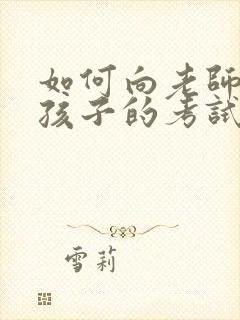 如何向老師
孩子的考試
雪莉